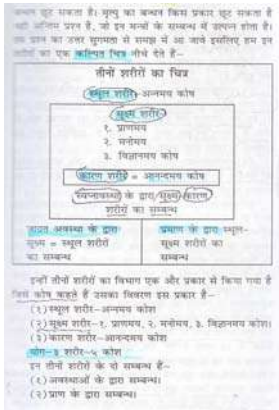 बन्धन छूट सकता है। मृत्यु का बन्धन किस प्रकार छूट सकता है
यही अन्तिम प्रश्न है, जो इन मन्त्रों के सम्बन्ध में उत्पन्न होता है।
इस प्रश्न का उत्तर सुगमता से समझ में आ जावे इसलिए हम इन
शरीरों का एक कल्पित चित्र नीचे देते हैं–
तीनों शरीरों का चित्र
स्थूल शरीर-अन्नमय कोष
सूक्ष्म शरीर-
१. प्राणमय
२. मनोमय
३. विज्ञानमय कोष
कारण शरीर = आनन्दमय कोष
स्वप्नावस्था के द्वारा सूक्ष्म-कारण
शरीरों का सम्बन्ध
जाग्रत अवस्था के द्वारा
सूक्ष्म = स्थूल शरीरों
का सम्बन्ध
प्रमाण के द्वारा स्थूल-
सूक्ष्म शरीरों का
सम्बन्ध
इन्हीं तीनों शरीरों का विभाग एक और प्रकार से किया गया है
जिसे कोष कहते हैं उसका विवरण इस प्रकार है–
(१) स्थूल शरीर-अन्नमय कोष
(२) सूक्ष्म शरीर-१. प्राणमय, २. मनोमय, ३. विज्ञानमय कोष।
(३) कारण शरीर-आनन्दमय कोष
योग-३ शरीर-५ कोष
इन तीनों शरीरों के दो सम्बन्ध हैं–
(१) अवस्थाओं के द्वारा सम्बन्ध।
(२) प्राण के द्वारा सम्बन्ध।